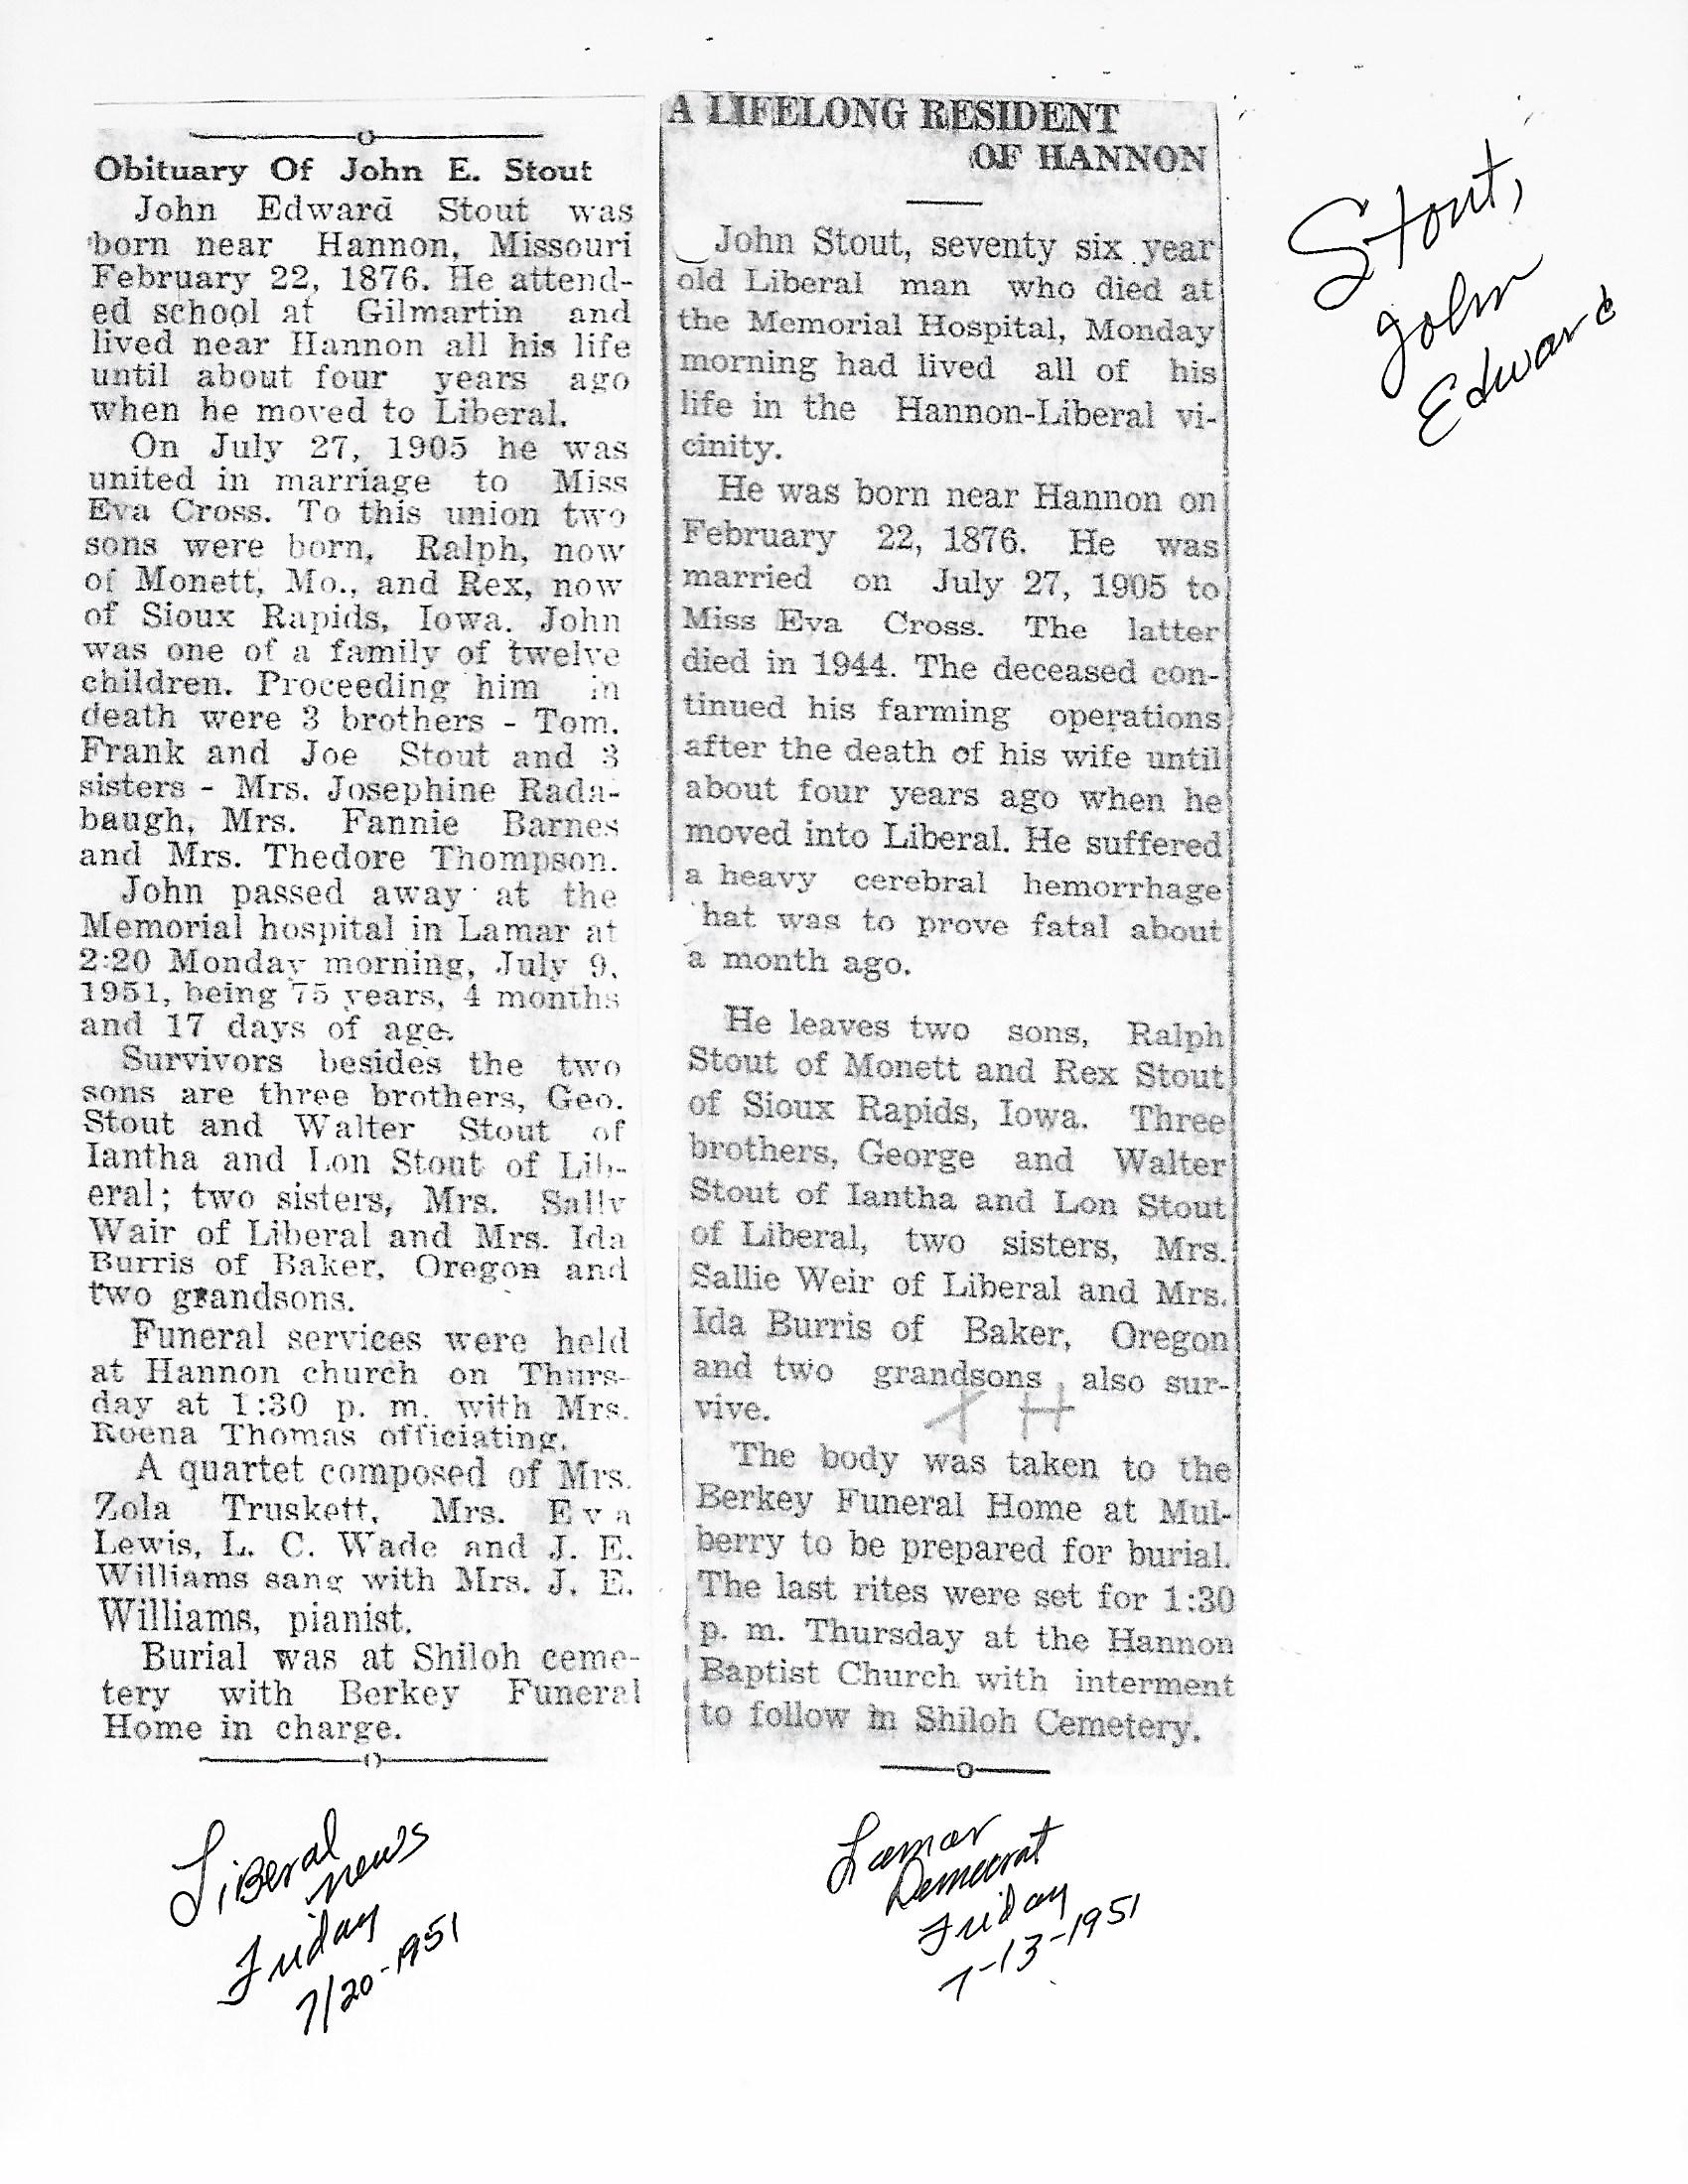 Obituary Of John E. Stout
John Edward Stout was
born near Hannon, Missouri
February 22, 1876. He attend-
ed school at Gilmartin and
lived near Hannon all his life
until about four years ago
when he moved to Liberal.
On July 27, 1905 he was
united in marriage to Miss
Eva Cross. To this union two
sons were born, Ralph, now
of Monett, Mo., and Rex, now
of Sioux Rapids, Iowa. John
was one of a family of twelve
children. Proceeding him in
death were 3 brothers - Tom.
Frank and Joe Stout and 3
sisters - Mrs. Josephine Rada-
baugh, Mrs. Fannie Barnes
and Mrs. Thedore Thompson.
John passed away at the
Memorial hospital in Lamar at
2:20 Monday morning, July 9,
1951, being 75 years, 4 months
and 17 days of age.
Survivors besides the two
sons are three brothers, Geo.
Stout and Walter Stout of
Iantha and Lon Stout of Lib-
eral; two sisters, Mrs. Sally
Wair of Liberal and Mrs. Ida
Burris of Baker, Oregon and
two grandsons.
Funeral services were held
at Hannon church on Thurs-
day at 1:30 p. m. with Mrs.
Roena Thomas officiating.
A quartet composed of Mrs.
Zola Truskett, Mrs. Eva
Lewis, L. C. Wade and J. E.
Williams sang with Mrs. J. E.
Williams, pianist.
Burial was at Shiloh ceme-
tery with Berkey Funeral
Home in charge.
Liberal
news
Friday
7/20-1951
A LIFELONG RESIDENT
OF HANNON
John Stout, seventy six year
old Liberal man who died at
the Memorial Hospital, Monday
morning had lived all of his
life in the Hannon-Liberal vi-
cinity.
He was born near Hannon on
February 22, 1876. He was
married on July 27, 1905 to
Miss Eva Cross. The latter
died in 1944. The deceased con-
tinued his farming operations
after the death of his wife until
about four years ago when he
moved into Liberal. He suffered
a heavy cerebral hemorrhage
hat was to prove fatal about
a month ago.
He leaves two sons, Ralph
Stout of Monett and Rex Stout
of Sioux Rapids, Iowa. Three
brothers, George and Walter
Stout of Iantha and Lon Stout
of Liberal, two sisters, Mrs.
Sallie Weir of Liberal and Mrs.
Ida Burris of Baker, Oregon
and two grandsons also sur-
vive.
The body was taken to the
Berkey Funeral Home at Mul-
berry to be prepared for burial.
The last rites were set for 1:30
p. m. Thursday at the Hannon
Baptist Church with interment
to follow in Shiloh Cemetery.
Lamar
Democrat
Friday
7-13-1951
Stout,
John
Edward